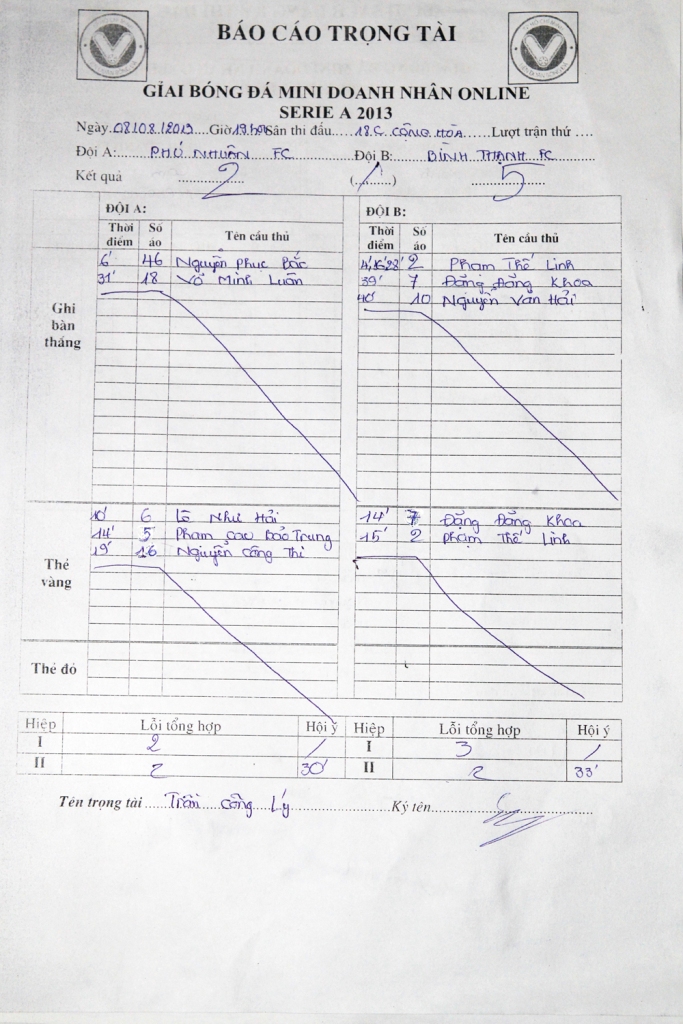 BÁO CÁO TRỌNG TÀI
GIẢI BÓNG ĐÁ MINI DOANH NHÂN ONLINE
SERIE A 2013
Ngày 08/08/2013 Giờ 19h Sân thi đấu 18.C CỘNG HÒA Lượt trận thứ ....
Đội A: PHÚ NHUẬN FC Đội B: BÌNH THẠNH FC
Kết quả 2 ( / ) 5
ĐỘI A: ĐỘI B:
Thời điểm Số áo Tên cầu thủ Thời điểm Số áo Tên cầu thủ
Ghi bàn thắng
6' 46 Nguyễn Phục Bắc 4',16',28' 2 Phạm Thế Linh
31' 18 Võ Minh Luân 39' 7 Đặng Đăng Khoa
40' 10 Nguyễn Văn Hải
Thẻ vàng
10' 6 Lê Như Hải 14' 7 Đặng Đăng Khoa
14' 5 Phạm Cao Bảo Trung 15' 2 Phạm Thế Linh
19' 16 Nguyễn Công Thi
Thẻ đỏ
Hiệp Lỗi tổng hợp Hội ý Hiệp Lỗi tổng hợp Hội ý
I 2 / I 3 /
II 2 30' II 2 33'
Tên trọng tài Trần Công Lý Ký tên